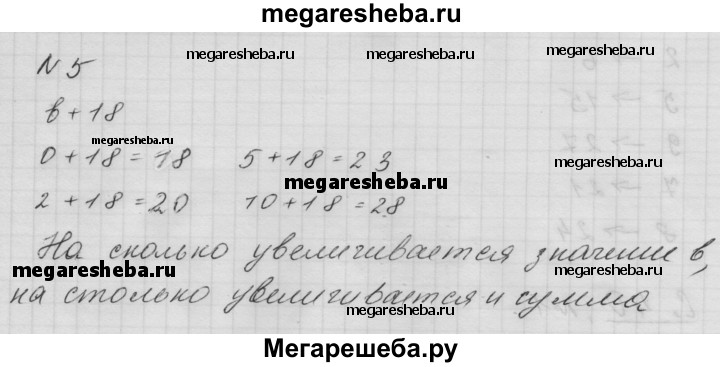 megaresheba.ru
N 5
megaresheba.ru megaresheba.ru
в + 18
megaresheba.ru
0 + 18 = 18 5 + 18 = 23
megaresheba.ru
2 + 18 = 20 10 + 18 = 28
На сколько увеличивается значение в,
megaresheba.ru megaresheba.ru
на столько увеличивается и сумма
megaresheba.ru
Мегарешеба.ру